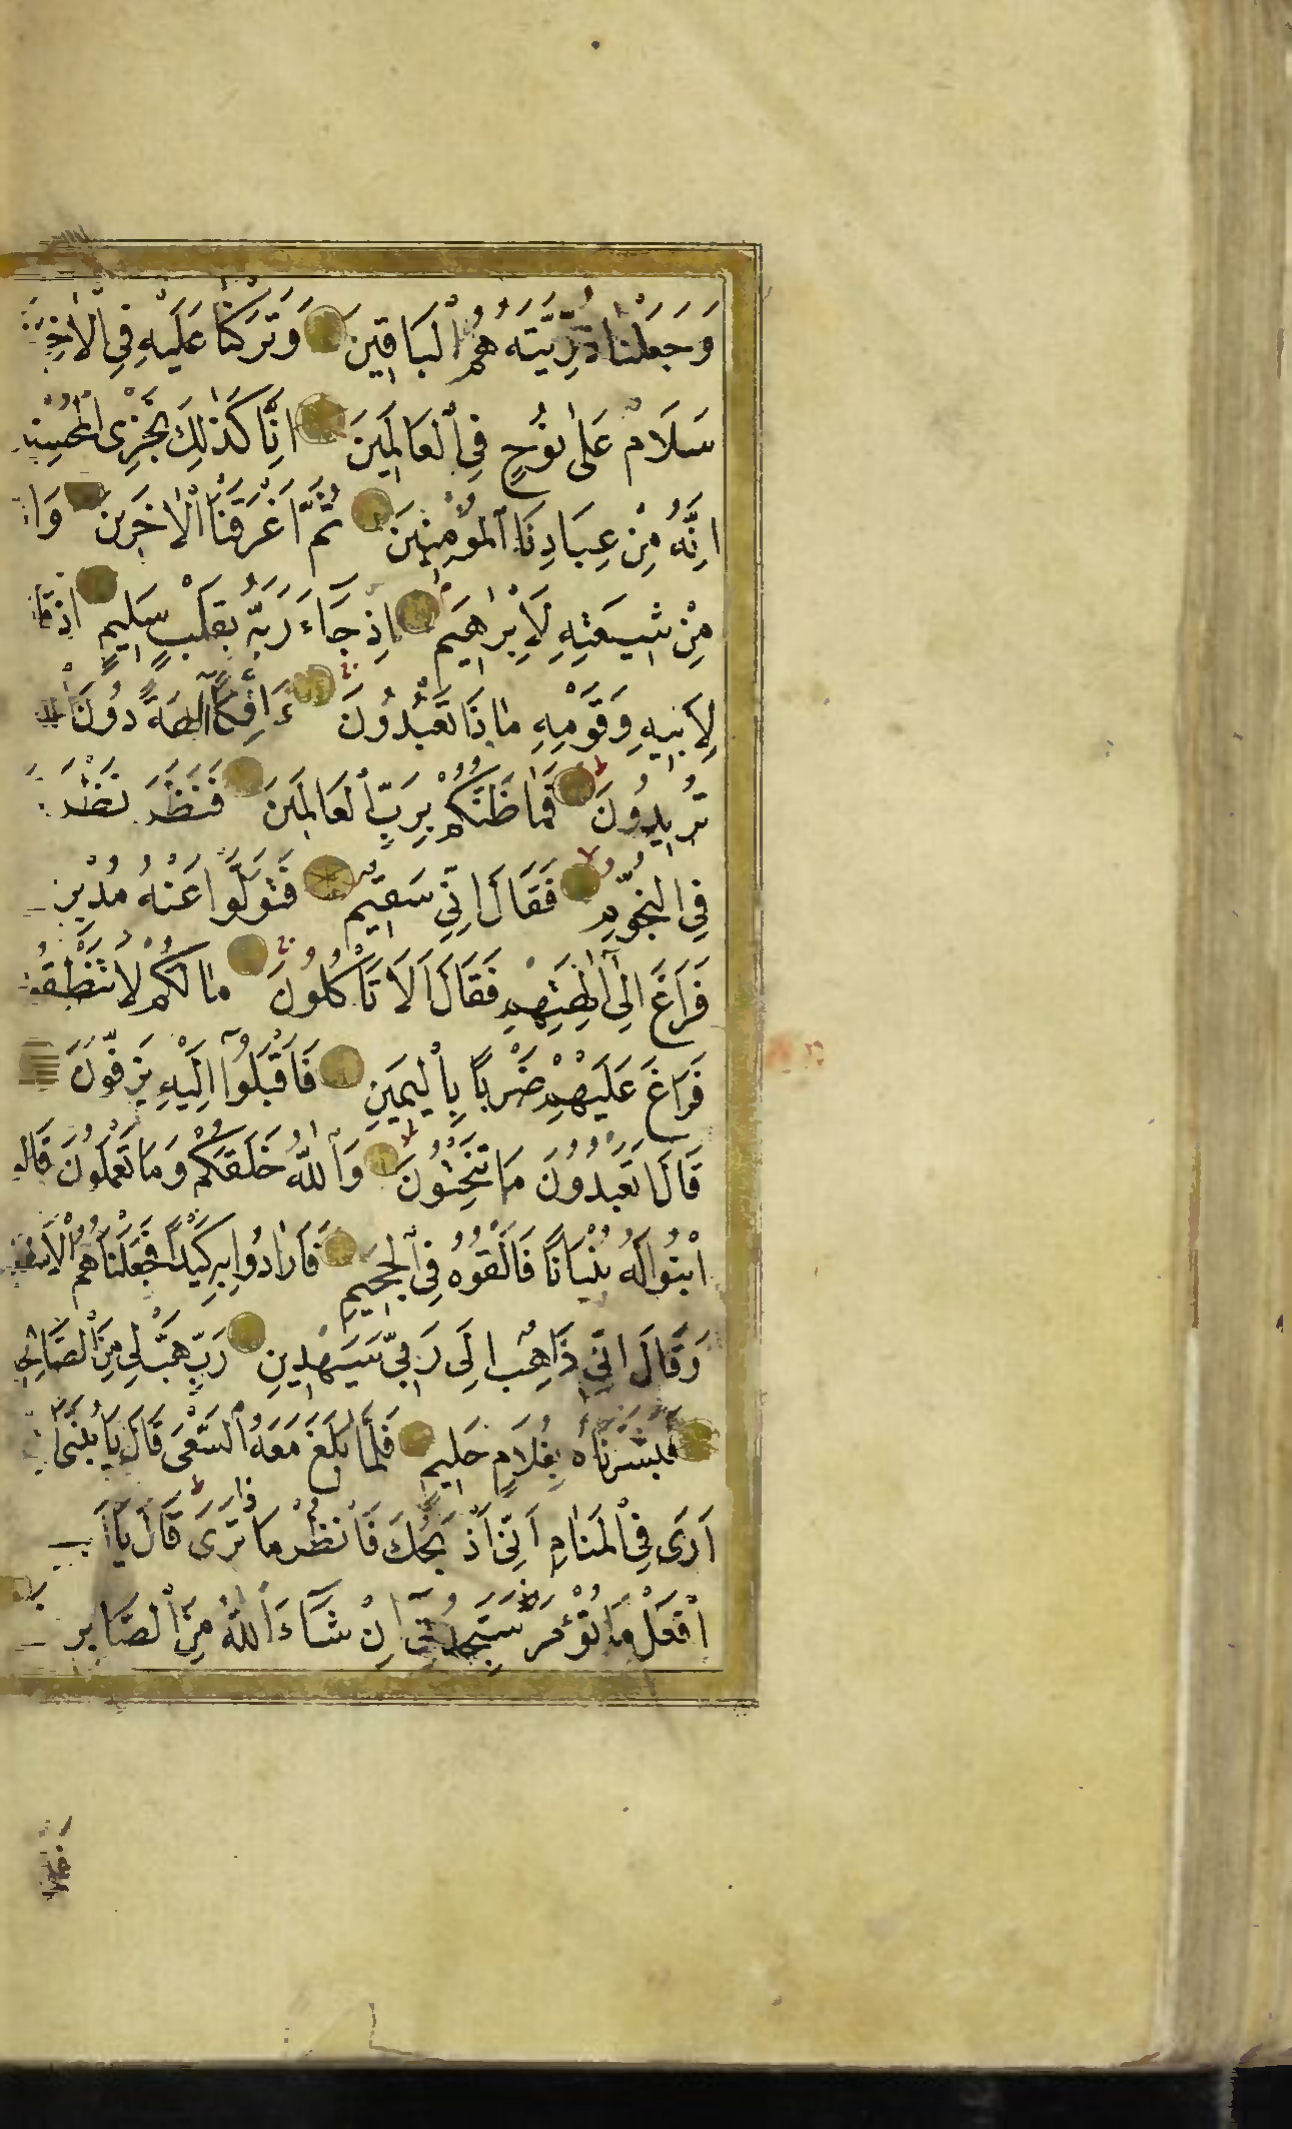 وَجَعَلْنَا ذُرِّيَّتَهُ هُمُ الْبَاقِينَ وَتَرَكْنَا عَلَيْهِ فِي الْاٰخِرِ
سَلَامٌ عَلٰى نُوحٍ فِي الْعَالَمِينَ اِنَّا كَذٰلِكَ نَجْزِي الْمُحْسِنِ
اِنَّهُ مِنْ عِبَادِنَا الْمُؤْمِنِينَ ثُمَّ اَغْرَقْنَا الْاٰخَرِينَ وَاِ
مِنْ شِيعَتِهِ لَاِبْرٰاهِيمَ اِذْ جَاءَ رَبَّهُ بِقَلْبٍ سَلِيمٍ اِذْ قَا
لِاَبِيهِ وَقَوْمِهِ مَاذَا تَعْبُدُونَ ءَاِفْكًا اٰلِهَةً دُونَ
تُرِيدُونَ فَمَا ظَنُّكُمْ بِرَبِّ الْعَالَمِينَ فَنَظَرَ نَظْرَ
فِي النُّجُومِ فَقَالَ اِنِّي سَقِيمٌ فَتَوَلَّوْا عَنْهُ مُدْبِرِ
فَرَاغَ اِلٰى اٰلِهَتِهِمْ فَقَالَ اَلَا تَأْكُلُونَ مَا لَكُمْ لَا تَنْطِقُو
فَرَاغَ عَلَيْهِمْ ضَرْبًا بِالْيَمِينِ فَاَقْبَلُوا اِلَيْهِ يَزِفُّونَ
قَالَ اَتَعْبُدُونَ مَا تَنْحِتُونَ وَاللّٰهُ خَلَقَكُمْ وَمَا تَعْمَلُونَ قَالُو
ابْنُوا لَهُ بُنْيَانًا فَاَلْقُوهُ فِي الْجَحِيمِ فَاَرَادُوا بِهِ كَيْدًا فَجَعَلْنَاهُمُ الْاَسْفَ
وَقَالَ اِنِّي ذَاهِبٌ اِلٰى رَبِّي سَيَهْدِينِ رَبِّ هَبْ لِي مِنَ الصَّالِحِ
فَبَشَّرْنَاهُ بِغُلَامٍ حَلِيمٍ فَلَمَّا بَلَغَ مَعَهُ السَّعْيَ قَالَ يَا بُنَيَّ اِنِّ
اَرٰى فِي الْمَنَامِ اَنِّي اَذْبَحُكَ فَانْظُرْ مَاذَا تَرٰى قَالَ يَا اَبَ
افْعَلْ مَا تُؤْمَرُ سَتَجِدُنِي اِنْ شَاءَ اللّٰهُ مِنَ الصَّابِرِ